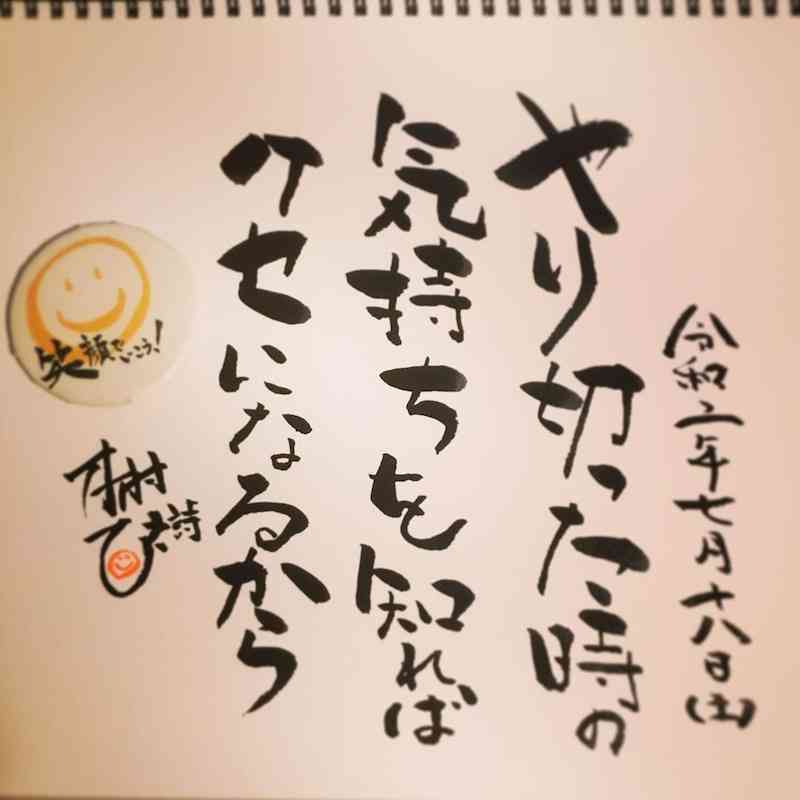 令和二年七月十八日(土)
やり切った時の
気持ちを知れば
クセになるから
笑顔でいこう!
樹
詩